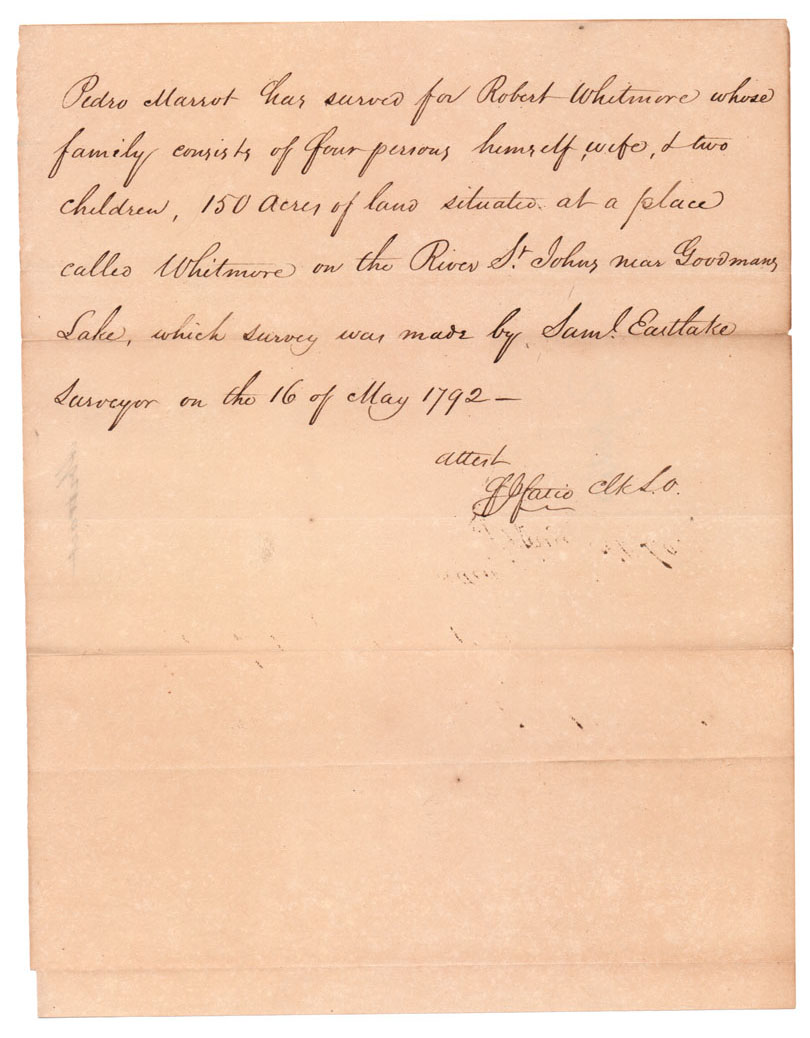 Pedro Marrot has surved for Robert Whitmore whose
family consists of four persons himself, wife, & two
children, 150 Acres of land situated at a place
called Whitmore on the River St. Johns near Goodmans
Lake, which survey was made by Saml. Eastlake
Surveyor on the 16 of May 1792 —
attest
F J Fatio Clk L.O.